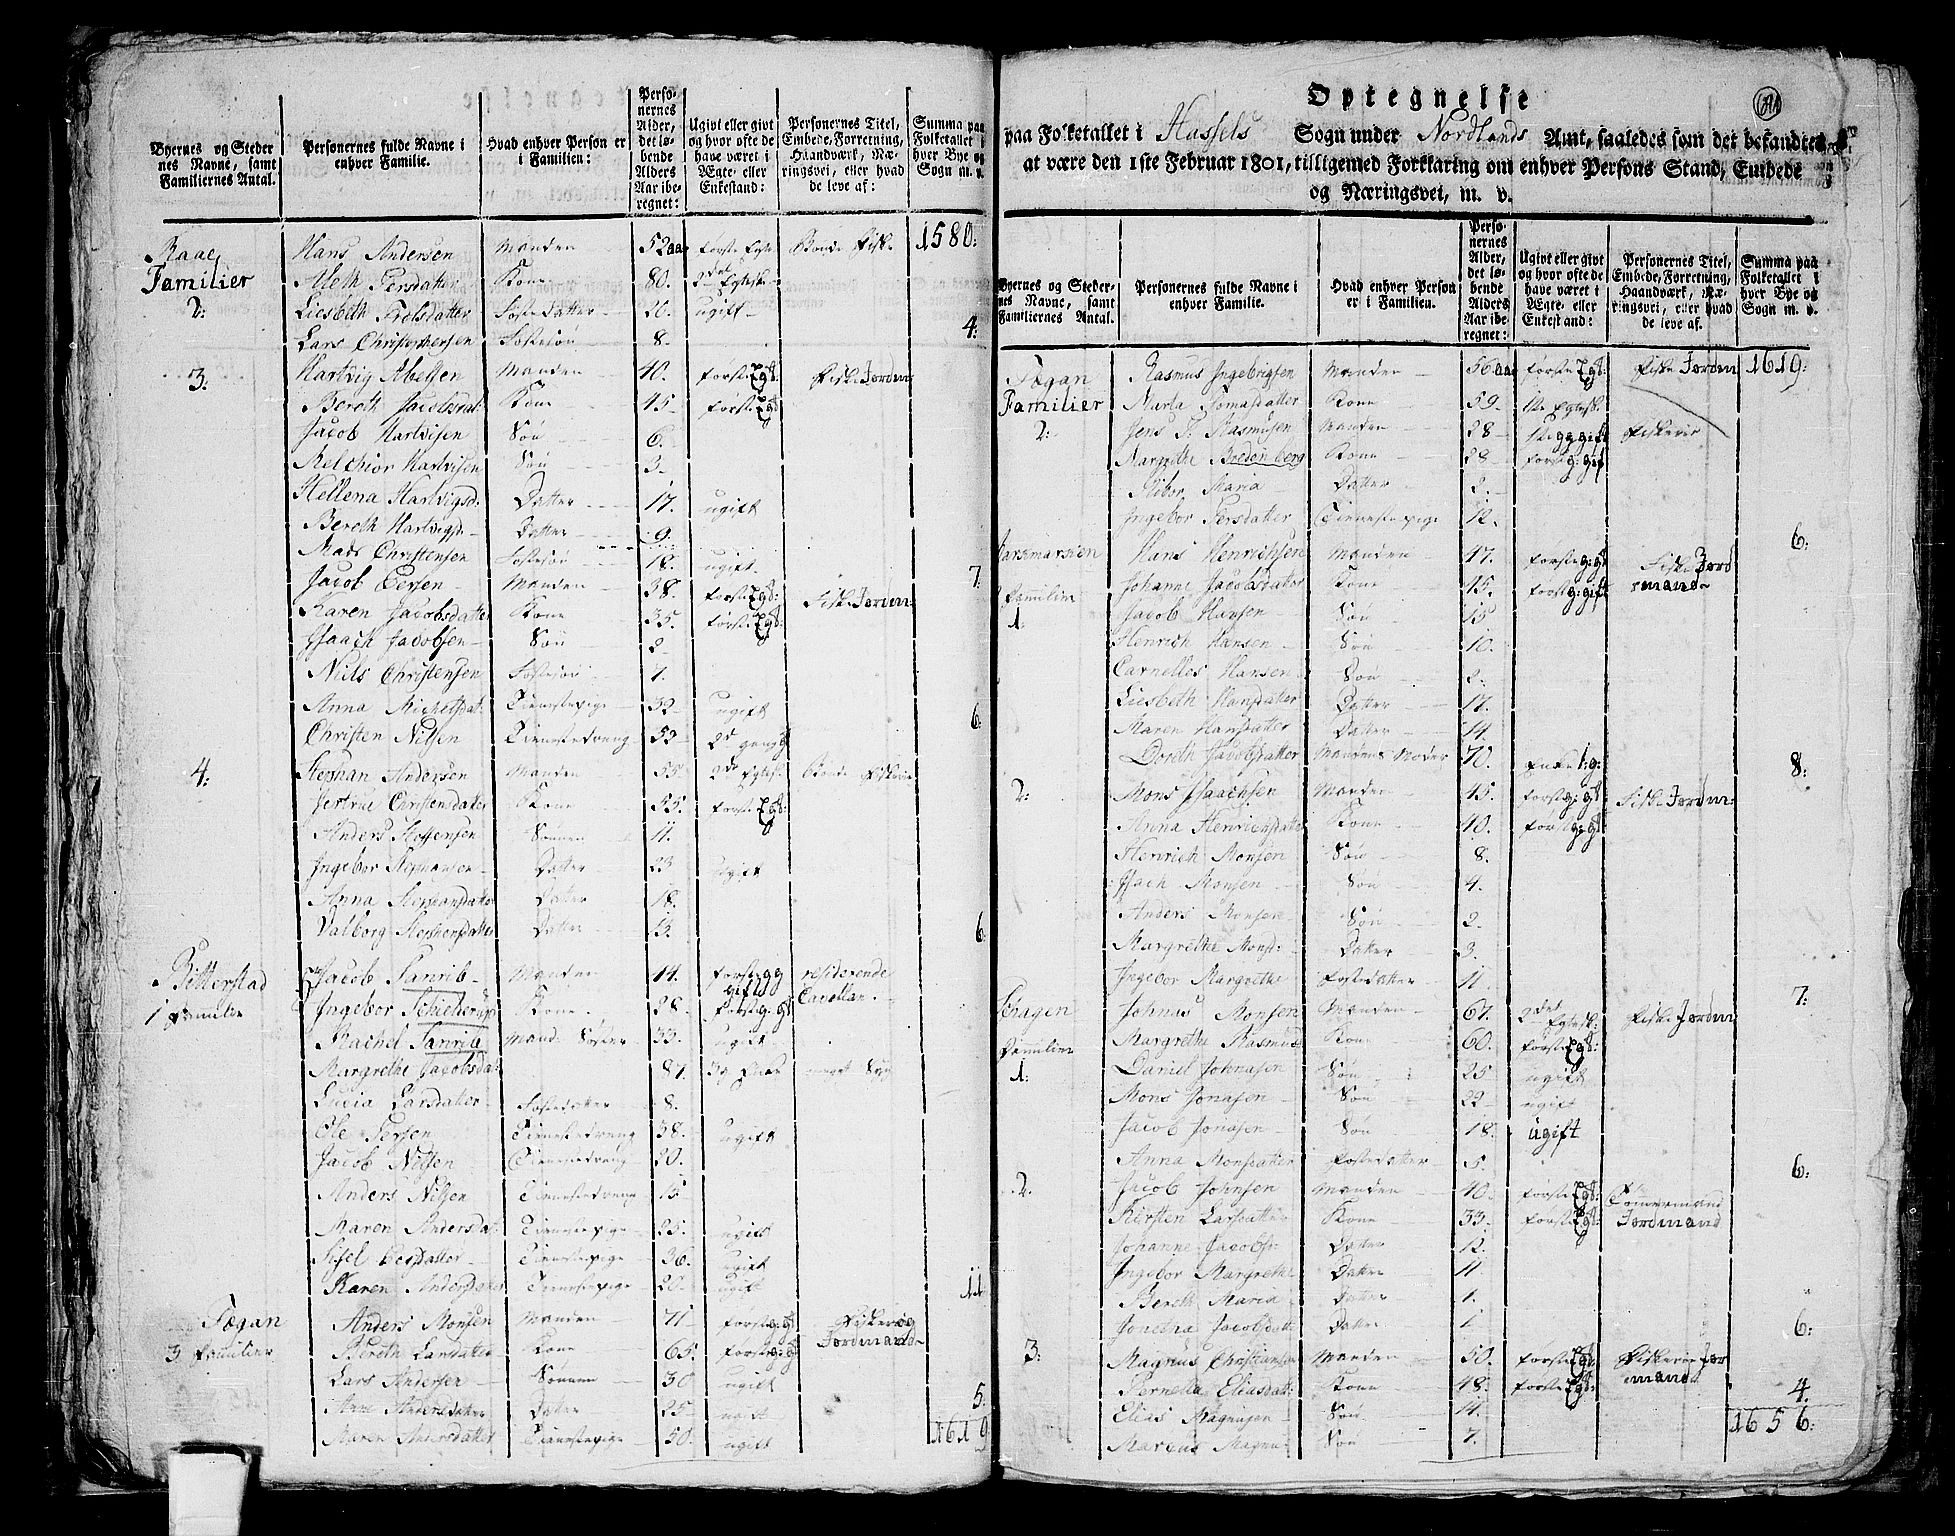 Byernes og Steder
nes Navne, samt
Familiernes Antal.
Personernes fulde Navne i
enhver Familie.
Hvad enhver Person er
i Familien:
Perso-
nernes
Alder,
det lø-
bende
Alders
Aar ibe-
regnet:
Ugivt eller givt
og hvor ofte de
have været i
Ægte- eller
Enkestand:
Personernes Titel,
Embede, Forretning,
Haandværk, Næ-
ringsvei, eller hvad
de leve af:
Summa paa
Folketallet i
hver Bye og
Sogn m. v.
Raae Hans Andersen Manden 52 aar første Egte Bonde Fisk: 1580:
Familier Aleth Persdatter Kone 80. 2det Egtesk:
2: Liesbeth Trolsdatter Fostedatter 26. ugift
Lars Christophersen Fostesøn 8. 4:
3. Hartvig Abelsen Manden 40. første Egt Fisk: Jordm:
Bereth Jacobsdat: Kone 45 første Egt
Jacob Hartvisen Søn 6.
Melchior Hartvisen Søn 3.
Hellena Hartvigsd: Datter 17. ugift
Bereth Hartvigs Datter 9.
Mads Christensen Fostesøn 18. ugift 7:
Jacob Persen Manden 38. første Egt: Fisk: Jordm:
Karen Jacobsdatter Kone 35. første Egt:
Isaach Jacobsen Søn 2
Nils Christensen Fostesøn 7.
Anna Michelsdat: Tienestepige 32 ugift 6:
Christen Nilsen Tienestedreng 52 2d gang gt
4: Stephan Andersen Manden 55. 2de Egtes: Bonde Fiskerie
Jertrue Christensdatter Kone 55. første Egt:
Anders Steffensen Sønnen 11.
Ingebor Stephansen Datter 23 ugift
Anna Stephansdatter Datter 18.
Valborg Stephensdatter Datter 13. 6:
Bitterstad Jacob Parrib Manden 44. første gg gift residerende
1 Familie Ingebor Schielderup Kone 28. første g. gt Capellan.
Rachel Parrib Mand: Søster 33. ugift
Margrethe Jacobsda: 87. 3g Enke
Lucia Larsdatter Fostedatter 8.
Ole Persen Tienestedreng 38. ugift
Jacob Nilsen Tienestedreng 20.
Anders Nilsen Tienestedreng 15
Maren Andersdat: Tienestepige 25. ugift
Sisel Persdatter Tienestepige 36. ugift
Karen Andersdatter Tienestepige 20. ugift 11
Tøgan Anders Monsen Manden 71 første g: gt Fiskerie og
3 Familier Bereth Larsdatter Kone 65. første g: g Jordmand
Lars Andersen Sønnen 30 ugift
Anne Andersdatter Datter 25 ugift 5:
Maren Andersdatter Tienestepige 50. ugift 1619
Optegnelse
paa Folketallet i Hassels Sogn under Nordlands Amt, saaledes som det befandtes
at være den 1ste Februar 1801, tilligemed Forklaring om enhver Persons Stand, Embede
og Næringsvei, m. v.
Byernes og Steder-
nes Navne, samt
Familiernes Antal.
Personernes fulde Navne i
enhver Familie.
Hvad enhver Person
er i Familien.
Perso-
nernes
Alder,
det lø-
bende
Alders
Aar ibe-
regnet:
Ugivt eller givt
og hvor ofte de
have været i
Ægte- eller
Enkestand:
Personernes Titel,
Embede, Forretning,
Haandværk, Næ-
ringsvei, eller hvad
de leve af.
Summa paa
Folketallet i
hver Bye og
Sogn m. v.
Tøgan Rasmus Ingebrigsen Manden 56 aar første Egt: Fisk: Jordm 1619:
Familier Marta Tomasdatter Kone 59 1te Egtesk:
2: Jens P. Rasmusen Manden 28 1te gg gift Fiskerie
Margrethe Bredenberg Kone 28 første g: gif
Maria Datter 2.
Ingebor Persdatter Tienestepige 12. 6:
Hans Henrichsen Manden 47. første g: gt Fisk: Jord
Familie Johanne Jacobsdatter Kone 45. første g: gift mand
1: Jacob Hansen Søn 15
Henrich Hansen Søn 10.
Carnelles Hansen Søn 2:
Liesbeth Hansdatter Datter 17.
Maren Hansdatter Datter 14.
Doreth Jacobsdatter Mandens Moder 70. Enke 1: g: 8:
2: Mons Isaachsen Manden 45. første g: gt Fisk: Jordm:
Anna Henrichsdatter Kone 40. første g: gt
Henrich Monsen Søn 8.
Isach Monsen Søn 4.
Anders Monsen Søn 2.
Margrethe Monsd: Datter 3.
Ingebor Margrethe Fostedatter 11. 7:
Johnas Monsen Manden 67. 2det Egtesk: Fisk: Jordm
Familier Margrethe Rasmusd Kone 60. første Egt:
1: Daniel Johnasen Søn 25 ugift
Mons Jonasen Søn 22 ugift
Jacob Jonasen Søn 18. ugift
Anna Monsdatter Fostedatter 5. 6:
2. Jacob Johnsen Manden 40. første Egt: Tømmermand
Kirsten Larsdatter Kone 33. første Egt: Jordmand
Johanne Jacobs: Datter 12.
Ingebor Margrethe Datter 11.
Bereth Maria Datter 1.
Jonetha Jacobsdatt Datter 1 6:
3: Magnus Christiansen Manden 50. første Egt: Fiskerie Jor
Pernella Eliasdatt: Kone 48. første Egt: mand 4.
Elias Magnusen Søn 14. 1656:
Marcus Magnu: Søn 7.